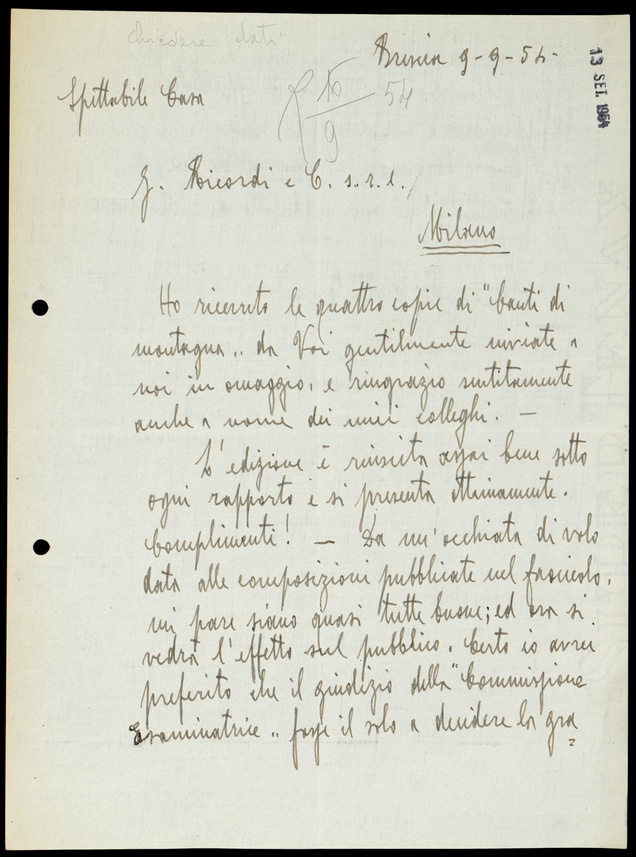 chiedere dati
Brescia 9-9-54-
13 SET. 1954
Spettabile Casa
R 10/9 54
G. Ricordi e C. s.r.l.
Milano
Ho ricevuto le quattro copie di "Canti di
montagna" da Voi gentilmente inviate a
noi in omaggio, e ringrazio sentitamente
anche a nome dei miei colleghi. —
L'edizione è riuscita assai bene sotto
ogni rapporto e si presenta ottimamente.
Complimenti! — Da un'occhiata di volo
data alle composizioni pubblicate nel fascicolo,
mi pare siano quasi tutte buone; ed ora si
vedrà l'effetto sul pubblico. Certo io avrei
preferito che il giudizio della "Commissione
Esaminatrice" fosse il solo a decidere la gra